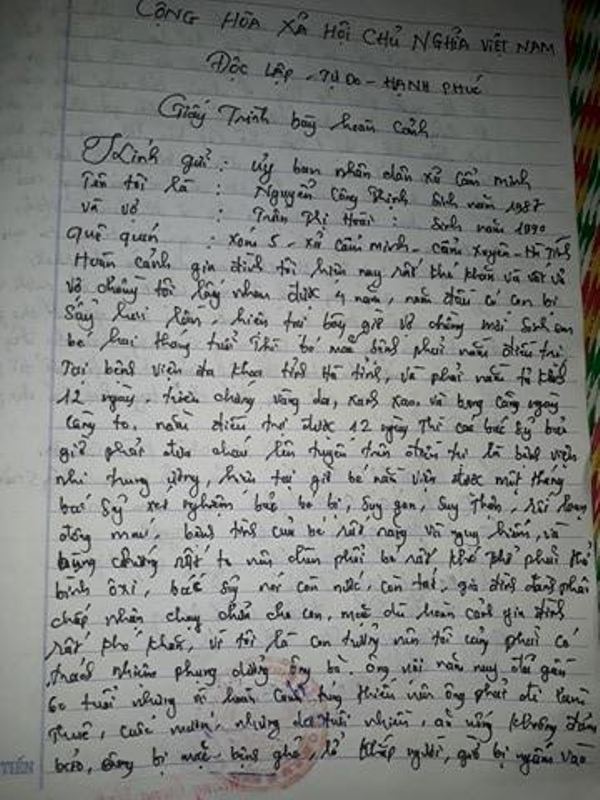 CỘNG HÒA XẢ HỘI CHỦ NGHĨA VIỆT NAM
Độc lập - Tự Do - HẠNH PHÚC
Giấy Trình bày hoàn cảnh
Kính gửi : Ủy ban nhân dân xã Cẩm minh
Tên tôi là : Nguyễn Công Thịnh Sinh năm 1987
Và vợ : Trần Thị Hoài : Sinh năm 1990
Quê quán : Xóm 5 - xã Cẩm minh - Cẩm Xuyên - Hà Tĩnh
Hoàn cảnh gia đình tôi hiện nay rất khó khăn và vất vả
Vợ chồng tôi lấy nhau được 4 năm, năm đầu có con bị
Sảy hai lần, hiện tại bây giờ vợ chồng mới Sinh em
bé hai tháng tuổi Thì bé mắc bệnh phải nằm điều trị
Tại bệnh viện đa khoa tỉnh Hà tỉnh, và phải nằm
12 ngày, triệu chứng vàng da, xanh xao, và bụng càng ngày
Càng to, nằm điều trị được 12 ngày Thì các bác sỹ bảo
giờ phải đưa cháu lên tuyến trên điều trị là bệnh viện
nhi trung ương, hiện tại giờ bé nằm viện được một tháng
bác sỹ xét nghiệm bảo bé bị, Suy gan, Suy Thận, rối loạn
đông máu, bệnh tình của bé rất nặng và nguy hiểm, và
bụng chướng rất to nên chèn phổi bé rất khó thở phải thở
bình ôxi, bác sỹ nói còn nước, còn tát, gia đình đang phải
chấp nhận chạy chữa cho con, mặc dù hoàn cảnh gia đình
rất khó khăn, vì tôi là con trưởng nên tôi cũng phải có
trách nhiệm phụng dưỡng ông bà. Ông nội năm nay đã gần
60 tuổi nhưng vì hoàn cảnh túng thiếu nên ông phải đi làm
Thuê, cuốc mướn, nhưng da tuổi nhiên, ai nấy không đảm
bảo, ông bị mắc bệnh ghẻ, lở khắp người, giờ bị ngấm vào
TIẾN